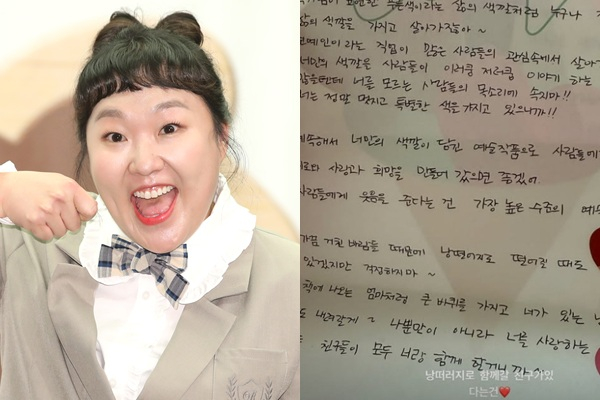 삶의 색깔처럼 누구나
삶의 색깔을 가지고 살아가잖아 ~
연예인이라는 직업이 많은 사람들의 관심속에서 살아
너만의 색깔을 사람들이 이러쿵 저러쿵 이야기 하는
너를 모르는 사람들의 목소리에 속지마!!
너는 정말 멋지고 특별한 색을 가지고 있으니까!!
계속해서 너만의 색깔이 담긴 예술작품으로 사람들에게
사랑과 희망을 만들어 갔으면 좋겠어.
사람들에게 웃음을 준다는 건 가장 높은 수준의
가끔 거친 바람들 때문에 낭떠러지로 떨어질 때도
있겠지만 걱정하지마 ~
책에 나오는 엄마처럼 큰 바퀴를 가지고 너가 있는
내려갈게 나뿐만이 아니라 너를 사랑하는
친구들이 모두 너랑 함께 할거니까
낭떠러지로 함께갈 친구가있
다는건❤️